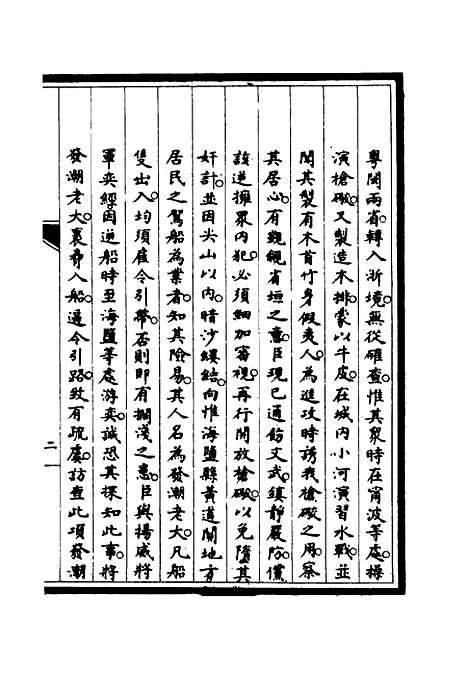 粵閩兩省。轉入浙境。無從確查。惟其眾時在甯波等處。操
演槍礮。又製造木排。蒙以牛皮。在城內小河演習水戰。並
聞其製有木首竹身假夷人。為進攻時誘我槍礮之用。察
其居心。有覬覦省垣之意。臣現已通飭文武。鎮靜嚴防。儻
該逆擁眾內犯。必須細加審視。再行開放槍礮。以免墮其
奸計。並因尖山以內。暗沙縷結。向惟海鹽縣黃道關地方
居民之駕船為業者。知其險易。其人名為發潮老大。凡船
隻出入。均須雇令引帶。否則即有擱淺之患。臣與揚威將
軍奕經。因逆船時至海鹽等處游奕。誠恐其探知此事。將
發潮老大裹脅入船。逼令引路。致有疏虞。訪查此項發潮
二一